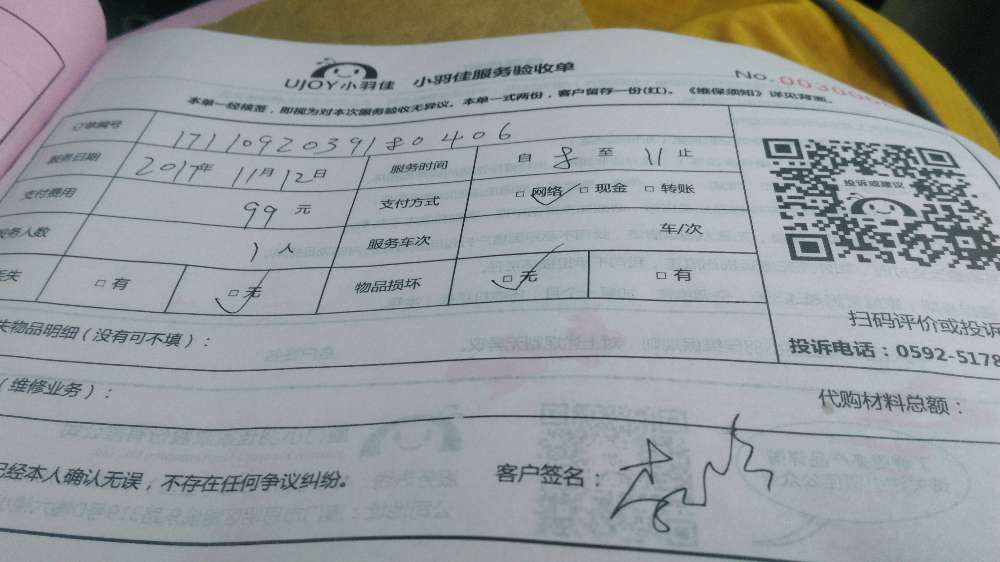 UJOY小羽佳 小羽佳服务验收单
No.
本单一经核签，即视为对本次服务验收无异议。本单一式两份，客户留存一份(红)。《维保须知》详见背面。
订单编号 1711092039180406
服务日期 2017年 11月 12日 服务时间 自 8 至 11 止
支付费用 99 元 支付方式 □ 网络 □ 现金 □ 转账
务人数 1 人 服务车次 车/次
失 □ 有 □ 无 物品损坏 □ 无 □ 有
投诉或建议
扫码评价或投诉
投诉电话：0592-5178
失物品明细（没有可不填）：
（维修业务）： 代购材料总额：
已经本人确认无误，不存在任何争议纠纷。 客户签名：